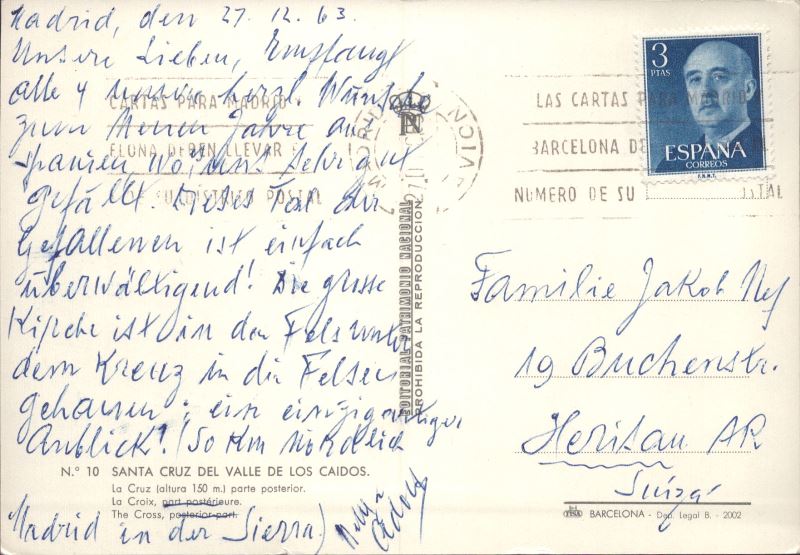 Madrid, den 27.12.63.
Unsere Lieben, Empfangt
alle 4 unsere herzl. Wünsche
zum Neuen Jahre aus
Spanien, wo's uns sehr gut
gefällt. Dieses Tal der
Gefallenen ist einfach
überwältigend! Die grosse
Kirche ist in den Fels unter
dem Kreuz in die Felsen
gehauen; ein einzigartiger
Anblick! (50 Km nördlich
Madrid in der Sierra)
CARTAS PARA MADRID
ELONA DEBEN LLEVAR E
SU DISTRITO POSTAL
N.° 10 SANTA CRUZ DEL VALLE DE LOS CAIDOS.
La Cruz (altura 150 m.) parte posterior.
La Croix, part postérieure.
The Cross, posterior part.
EDITORIAL PATRIMONIO NACIONAL
PROHIBIDA LA REPRODUCCION
LAS CARTAS PARA MADRID
BARCELONA DE
NUMERO DE SU STAL
3
PTAS
ESPAÑA
CORREOS
F.N.M.T.
Familie Jakob Nef
19 Buchenstr.
Herisau AR
Suiza
BARCELONA - Dep. Legal B. - 2002